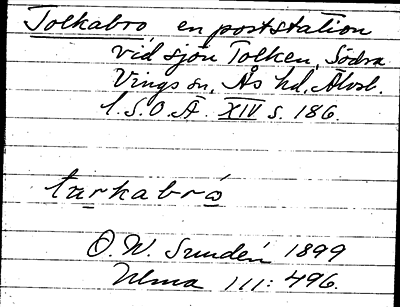 Tolkabro en poststation
vid sjön Tolken, Södra
Vings sn, Ås hd, Älvsb.
l. S.O.Ä. XIV s. 186.
tarkabrò
O. W. Sundén 1899
Ulma 111: 496.